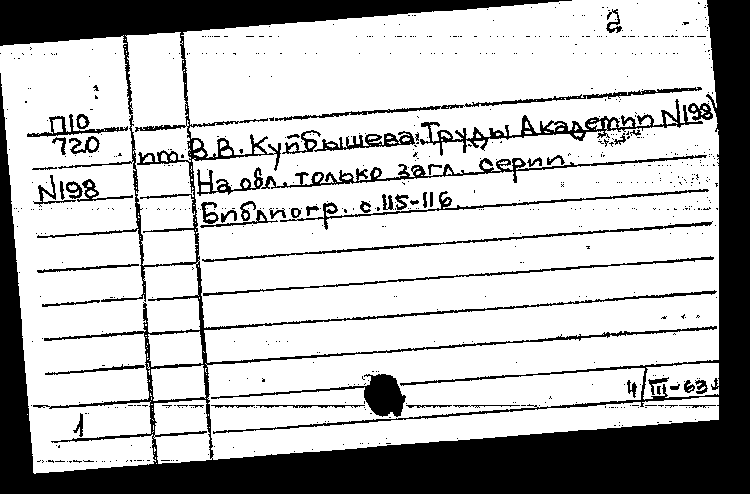 2
П10
720
N198
им. В.В. Куйбышева. Труды Академии N198)
На обл. только загл. серии.
Библиогр. с.115-116
4/III-63
1